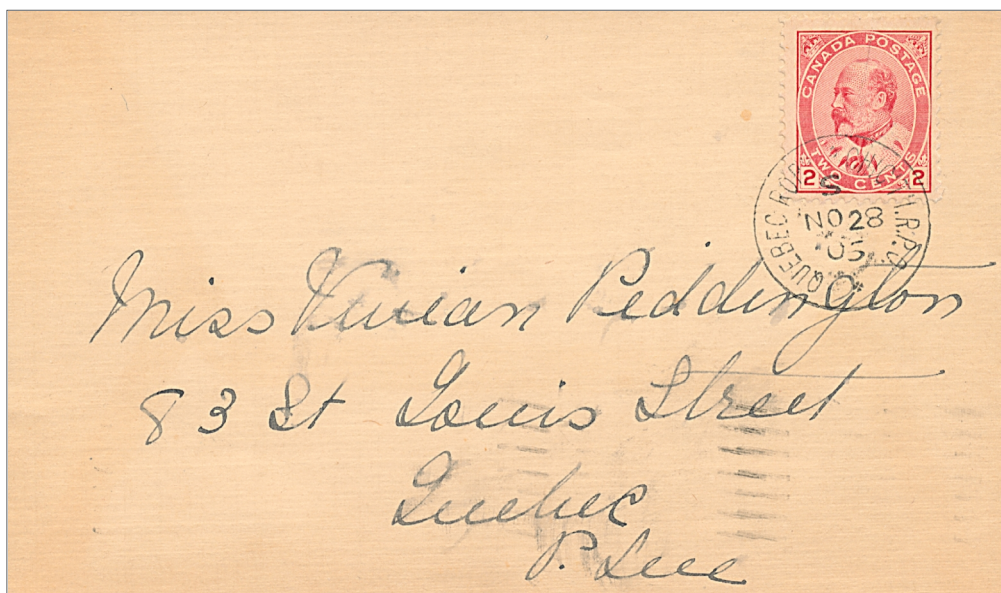 CANADA POSTAGE
TWO CENTS
2 2
QUEBEC
S
NO 28
05
Miss Vivian Peddington
83 St Louis Street
Quebec
P. Que